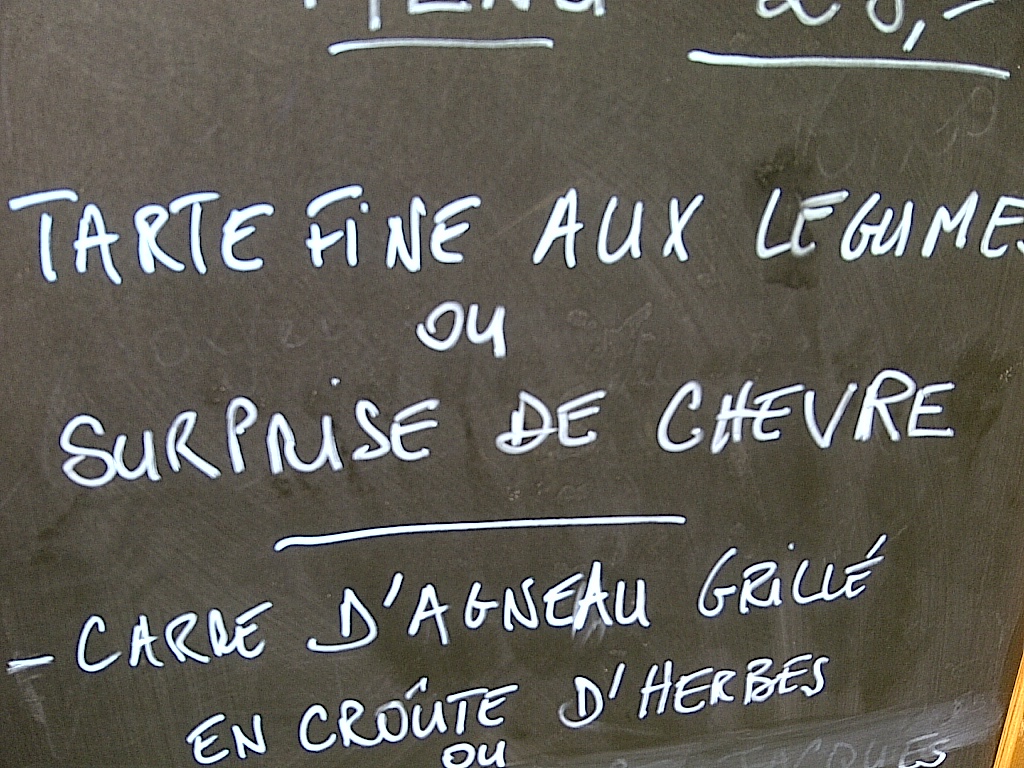 MENU 28,-
TARTE FINE AUX LEGUMES
OU
SURPRISE DE CHEVRE
- CARRE D'AGNEAU GRILLÉ
EN CROÛTE D'HERBES
OU
JACQUES